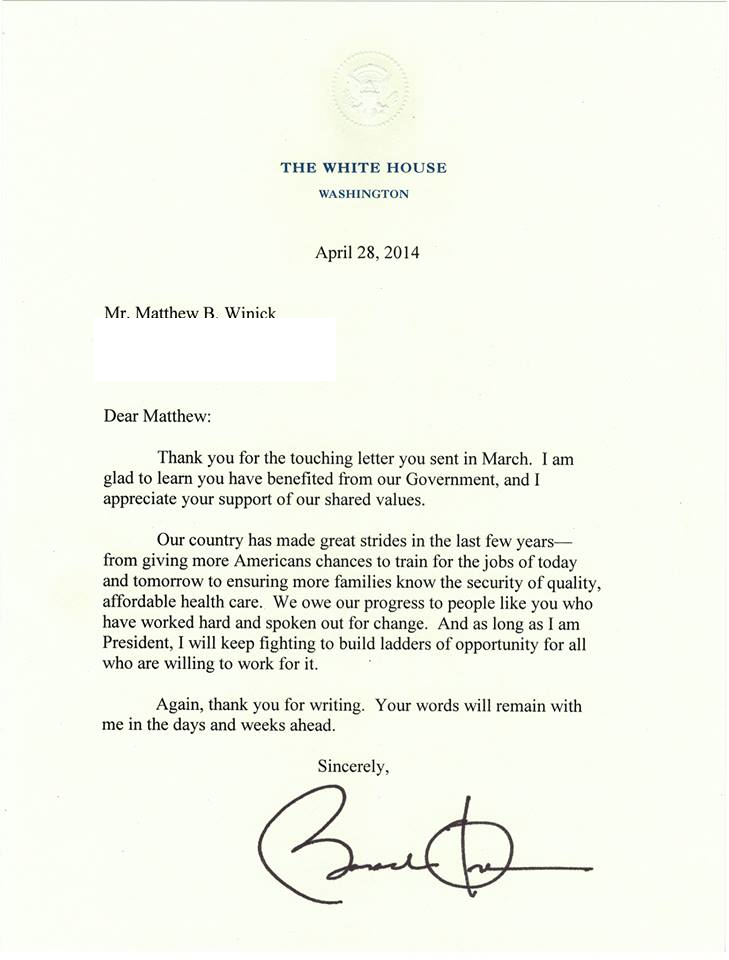 THE WHITE HOUSE
WASHINGTON
April 28, 2014
Mr. Matthew B. Winick
Dear Matthew:
Thank you for the touching letter you sent in March.  I am
glad to learn you have benefited from our Government, and I
appreciate your support of our shared values.
Our country has made great strides in the last few years—
from giving more Americans chances to train for the jobs of today
and tomorrow to ensuring more families know the security of quality,
affordable health care.  We owe our progress to people like you who
have worked hard and spoken out for change.  And as long as I am
President, I will keep fighting to build ladders of opportunity for all
who are willing to work for it.
Again, thank you for writing.  Your words will remain with
me in the days and weeks ahead.
Sincerely,
Barack Obama